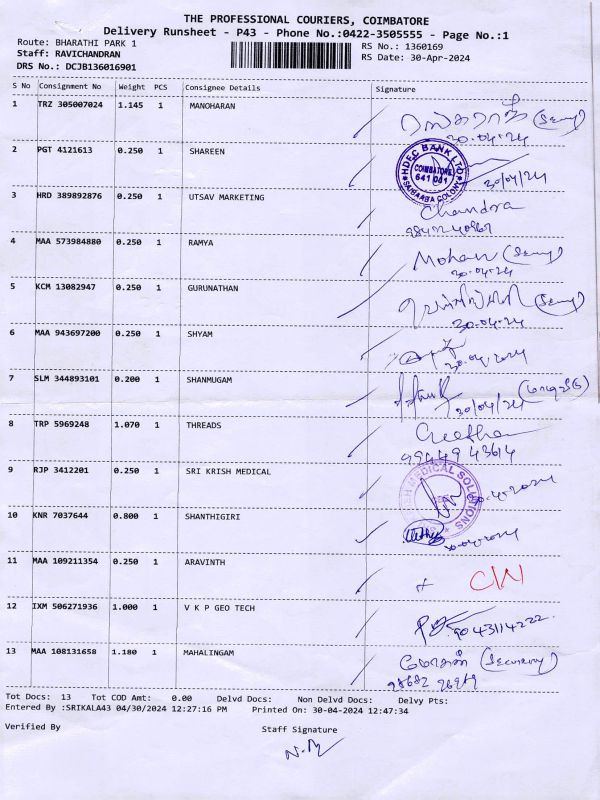 THE PROFESSIONAL COURIERS, COIMBATORE
Delivery Runsheet - P43 - Phone No.:0422-3505555 - Page No.:1
Route: BHARATHI PARK 1
RS No.: 1360169
Staff: RAVICHANDRAN
RS Date: 30-Apr-2024
DRS No.: DCJB136016901
S No Consignment No Weight PCS Consignee Details Signature
1 TRZ 305007024 1.145 1 MANOHARAN
30.04.24
2 PGT 4121613 0.250 1 SHAREEN
HDFC BANK LTD
COIMBATORE
641 001
SAIBAABA COLONY
30/04/24
3 HRD 389892876 0.250 1 UTSAV MARKETING
Chandra
4 MAA 573984880 0.250 1 RAMYA
Mohan
30.04.24
5 KCM 13082947 0.250 1 GURUNATHAN
30.04.24
6 MAA 943697200 0.250 1 SHYAM
30.04.2024
7 SLM 344893101 0.200 1 SHANMUGAM
30/04/24
8 TRP 5969248 1.070 1 THREADS
Geetha
99449 43614
9 RJP 3412201 0.250 1 SRI KRISH MEDICAL
MEDICAL SOLUTIONS
30.04.2024
10 KNR 7037644 0.800 1 SHANTHIGIRI
30.04.2024
11 MAA 109211354 0.250 1 ARAVINTH
12 IXM 506271936 1.000 1 V K P GEO TECH
9043114222
13 MAA 108131658 1.180 1 MAHALINGAM
(Security)
Tot Docs: 13 Tot COD Amt: 0.00 Delvd Docs: Non Delvd Docs: Delvy Pts:
Entered By :SRIKALA43 04/30/2024 12:27:16 PM Printed On: 30-04-2024 12:47:34
Verified By Staff Signature